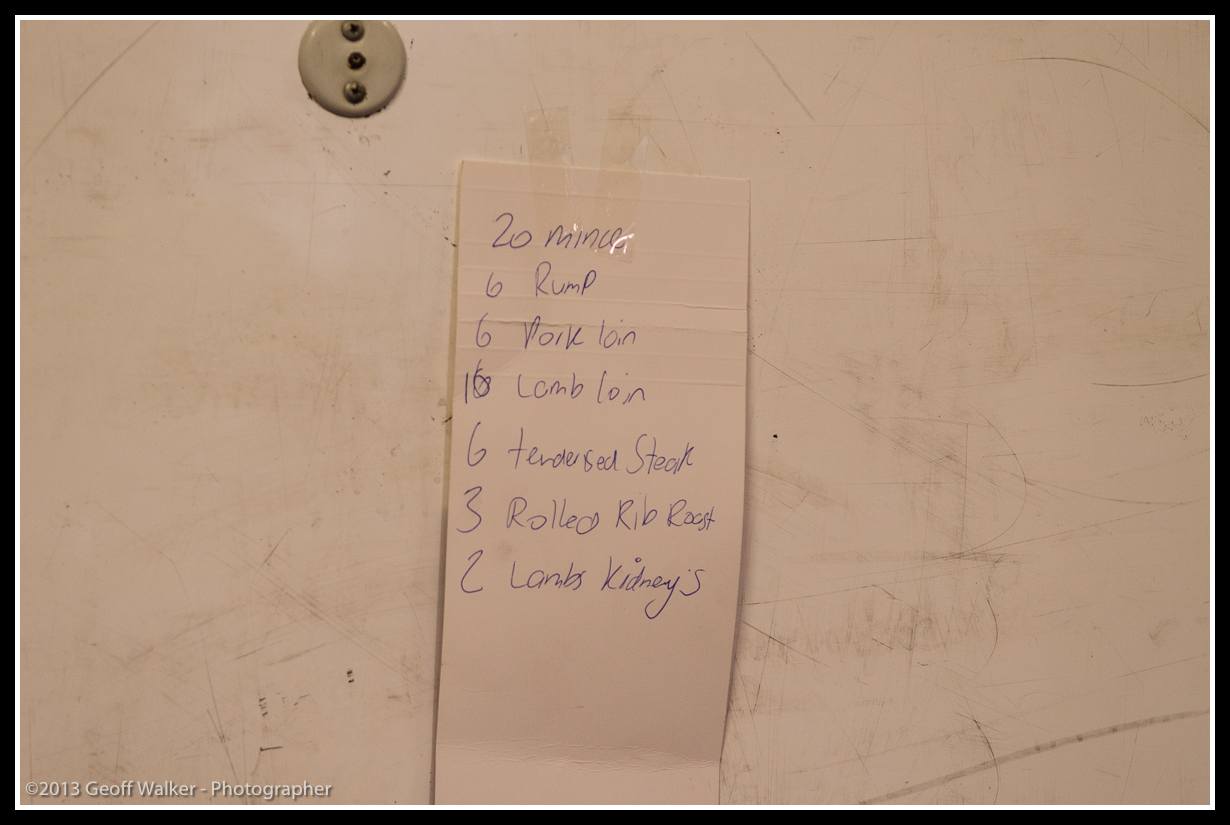 20 mince
6 Rump
6 Pork loin
10 Lamb loin
6 tenderised Steak
3 Rolled Rib Roast
2 Lambs Kidney's
©2013 Geoff Walker - Photographer